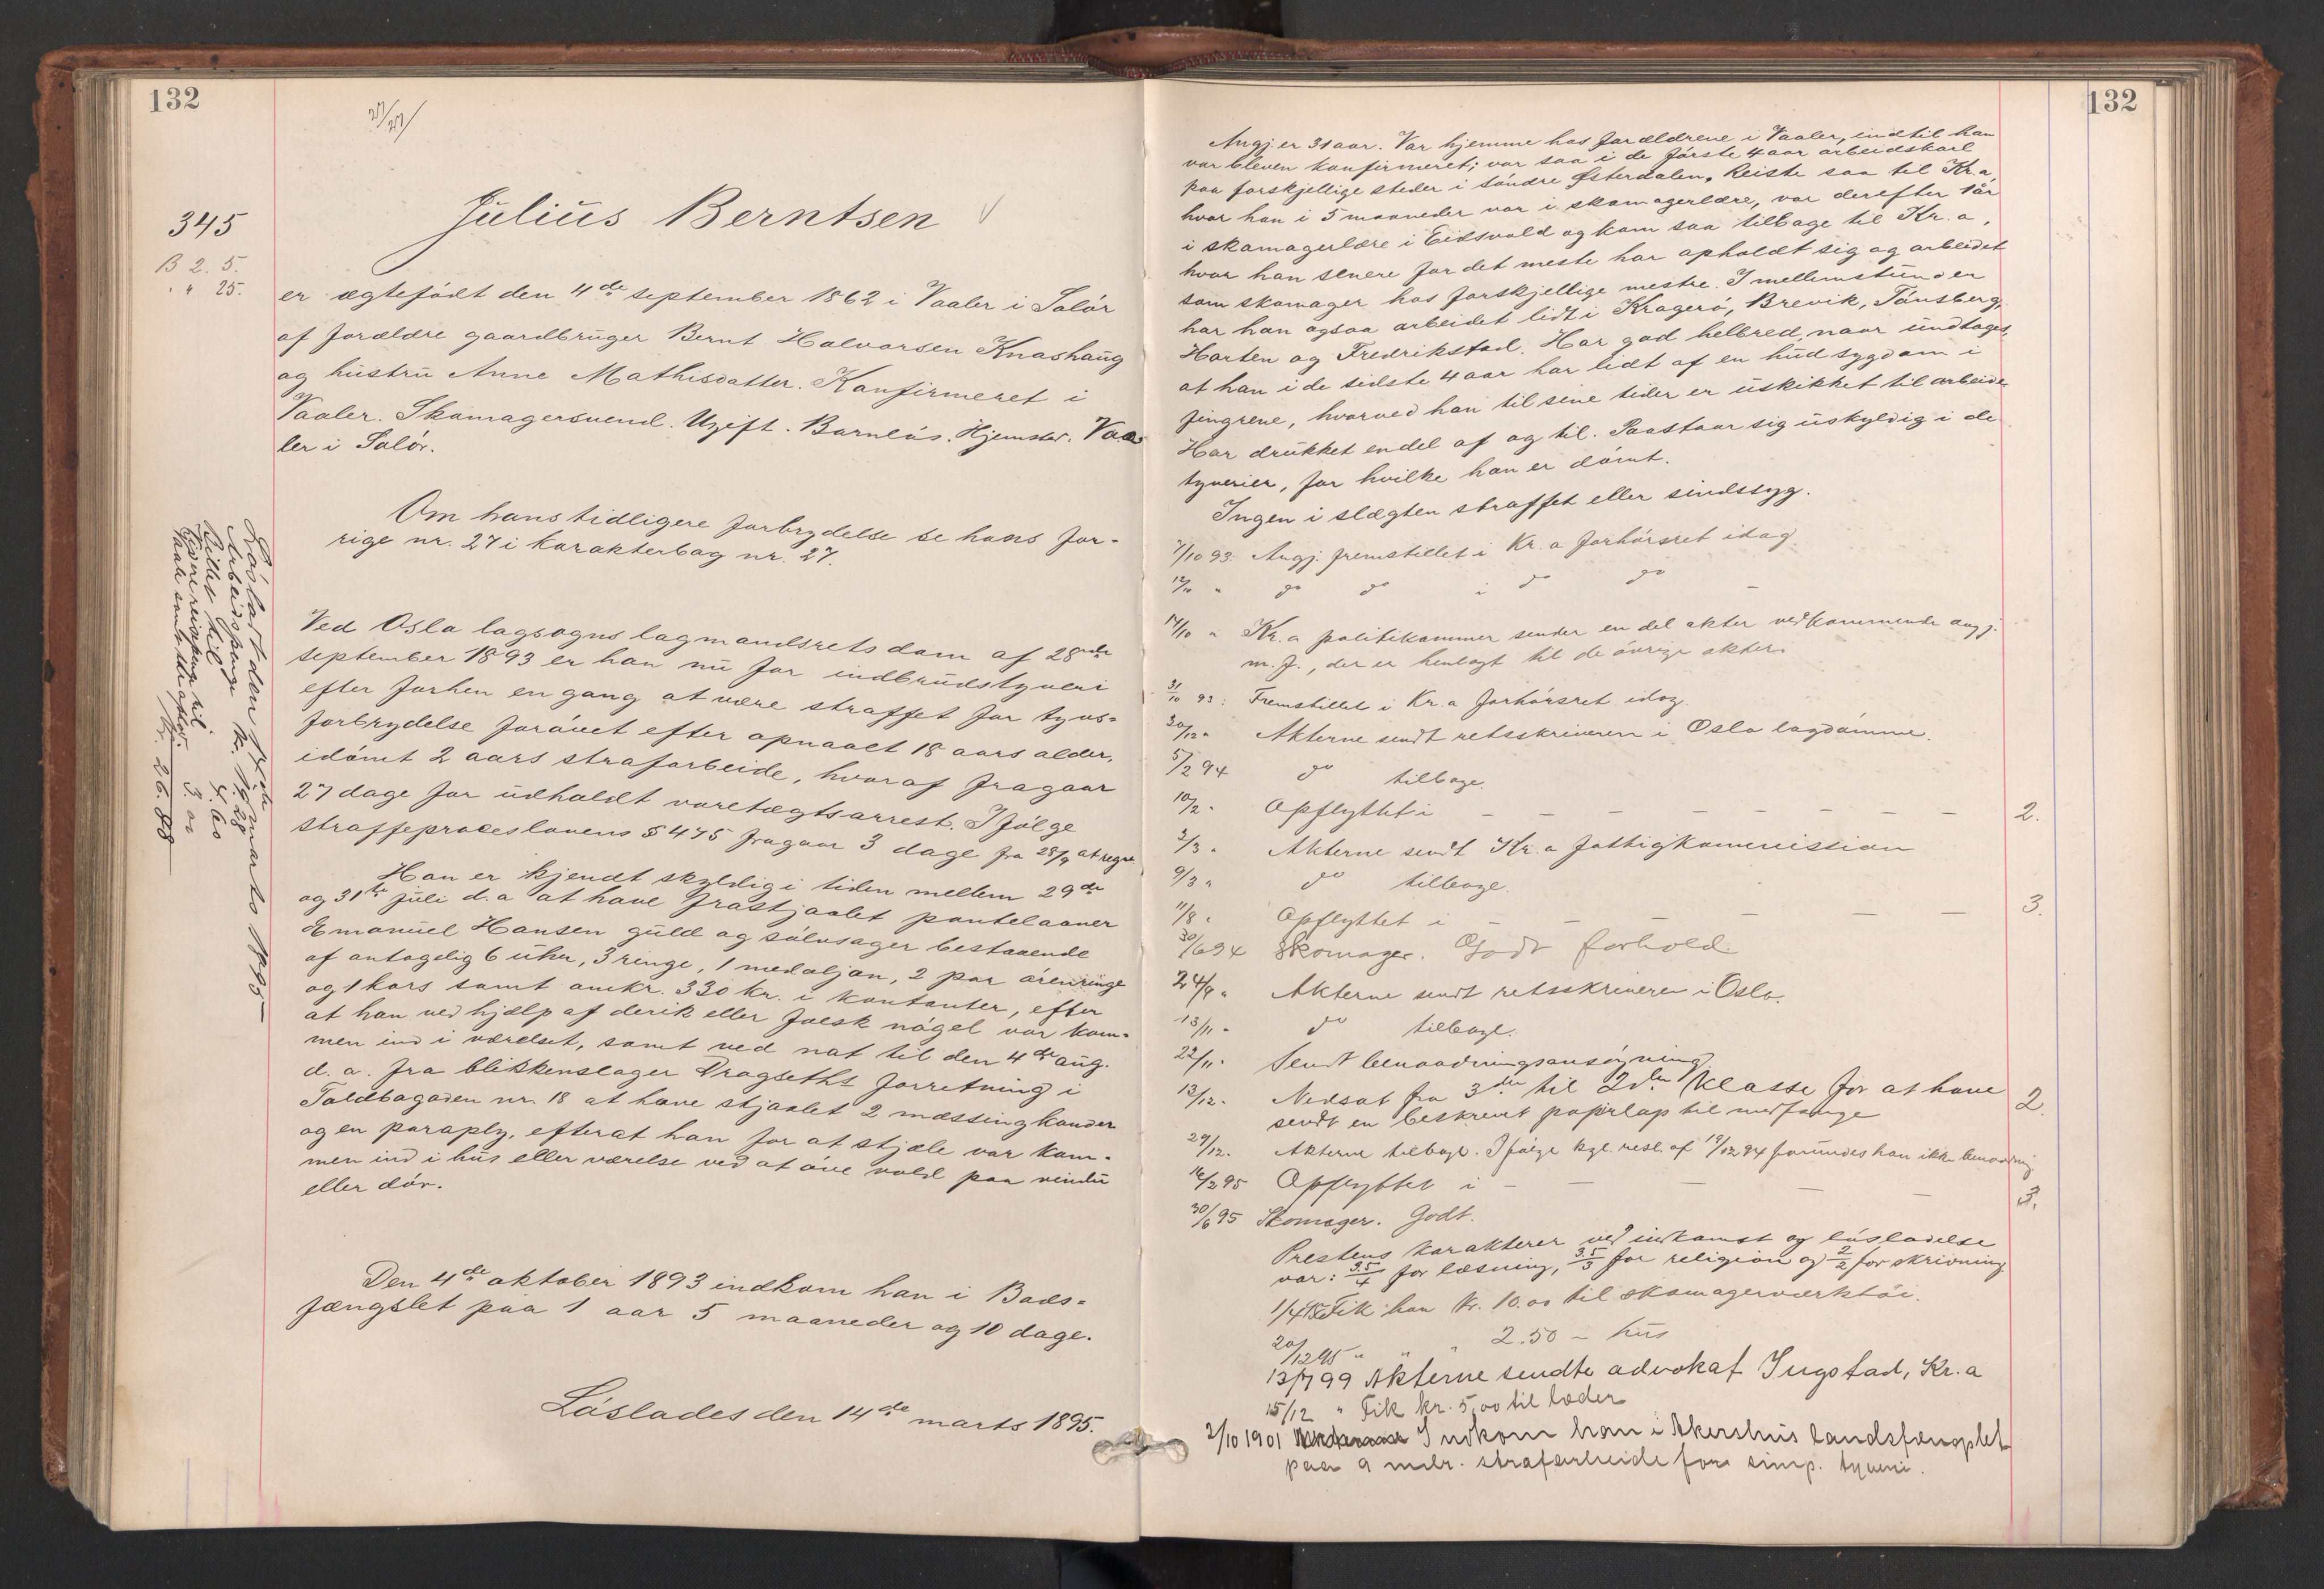 132
27/27/
345
B 2. 5.
" " 25.
Julius Berntsen
er ægtefødt den 4de september 1862 i Vaaler i Solør
af forældre gaardbruger Bernt Halvorsen Knashaug
og hustru Anne Mathisdatter. Konfirmeret i
Vaaler. Skomagersvend. Ugift. Barnløs. Hjemsted. Vaa-
ler i Solør.
Om hans tidligere forbrydelse se hans for-
rige nr. 27 i karakterbog nr. 27.
Løsladt den 14de marts 1895
Arbeidspenge kr. 19.28
Ved Osla lagsogns lagmandsrets dom af 28nde
september 1893 er han nu for indbrudstyveri
efter forhen en gang at være straffet for tyvs-
forbrydelse forøvet efter opnaaet 18 aars alder,
idømt 2 aars strafarbeide, hvoraf fragaar
27 dage for udholdt varetægtsarrest. Ifølge
straffeproceslovens § 475 fragaar 3 dage fra 28/9 at regne
Han er kjendt skyldig i tiden mellem 29de
og 31te juli d.a at have frastjaalet pantelaaner
Emanuel Hansen guld og sølvsager bestaaende
af antagelig 6 uhre, 3 ringe, 1 medaljon, 2 par ørenringe
og 1 kors samt omkr. 330 kr. i kontanter, efter
at han ved hjælp af derik eller falsk nøgel var kom-
men ind i værelset, samt ved nat til den 4de aug.
d. a. fra blikkenslager Dragseths forretning i
Toldbogaden nr. 18 at have stjaalet 2 messingkander
og en paraply, efterat han for at stjæle var kom-
men ind i hus eller værelse ved at øve vold paa vindu
eller dør.
Den 4de oktober 1893 indkom han i Bods-
fængslet paa 1 aar 5 maaneder og 10 dage.
Løslades den 14de marts 1895.
132
Angj. er 31 aar. Var hjemme hos forældrene i Vaaler, indtil han
var bleven konfirmeret; var saa i de første 4 aar arbeidskarl
paa forskjellige steder i søndre Østerdalen. Reiste saa til Kr.a,
hvor han i 5 maaneder var i skomagerlære, var derefter 1 år
i skomagerlære i Eidsvold og kom saa tilbage til Kr.a,
hvor han senere for det meste har opholdt sig og arbeidet
som skomager hos forskjellige mestre. I mellemstunder
har han ogsaa arbeidet lidt i Kragerø, Brevik, Tønsberg,
Horten og Fredrikstad. Har god helbred, naar undtages,
at han i de sidste 4 aar har lidt af en hudsygdom i
fingrene, hvorved han til sine tider er uskikket til arbeide
Har drukket endel af og til. Paastaar sig uskyldig i de
tyverier, for hvilke han er dømt.
Ingen i slægten straffet eller sindssyg.
7/10 93. Angj. fremstillet i Kr.a forhørsret idag
12/10 " do do i do do
14/10 " Kr.a politikammer sender en del akter vedkommende angj.
m. f., der er henlagt til de øvrige akter.
31/10 93: Fremstillet i Kr.a forhørsret idag.
30/12 " Akterne sendt retsskriveren i Oslo lagdømme.
5/2 94 do tilbage.
10/2 " Opflyttet i 2.
2/3 " Akterne sendt Kr.a fattigkommission
9/3 " do tilbage.
11/8 " Opflyttet i 3.
30/6 94 Skomager. Godt forhold.
24/9 " Akterne sendt retsskriveren i Oslo.
13/11 " do tilbage.
22/11 " Sendt benaadningsansøgning.
13/12 " Nedsat fra 3die til 2den klasse for at have 2.
sendt en beskrevet papirlap til medfange
29/12 " Akterne tilbage. Ifølge kgl. resl. af 19/12 94 forundes han ikke benaadning
16/2 95 Opflyttet i 3.
30/6 95 Skomager. Godt.
Prestens karakterer ved indkomst og løsladelse
var: 3.5/4 for læsning, 3.5/3 for religion og 2/2 for skrivning
1/4 95 Fik han kr. 10.00 til skomagerværktøi.
20/12 95 " " 2.50 - hus
13/7 99 Akterne sendte advokat Ingstad, Kr.a
15/12 " Fik kr. 5.00 til læder
2/10 1901 Indkom han i Akershus landsfængslet
paa 9 mdr. strafarbeide for simp. tyveri.